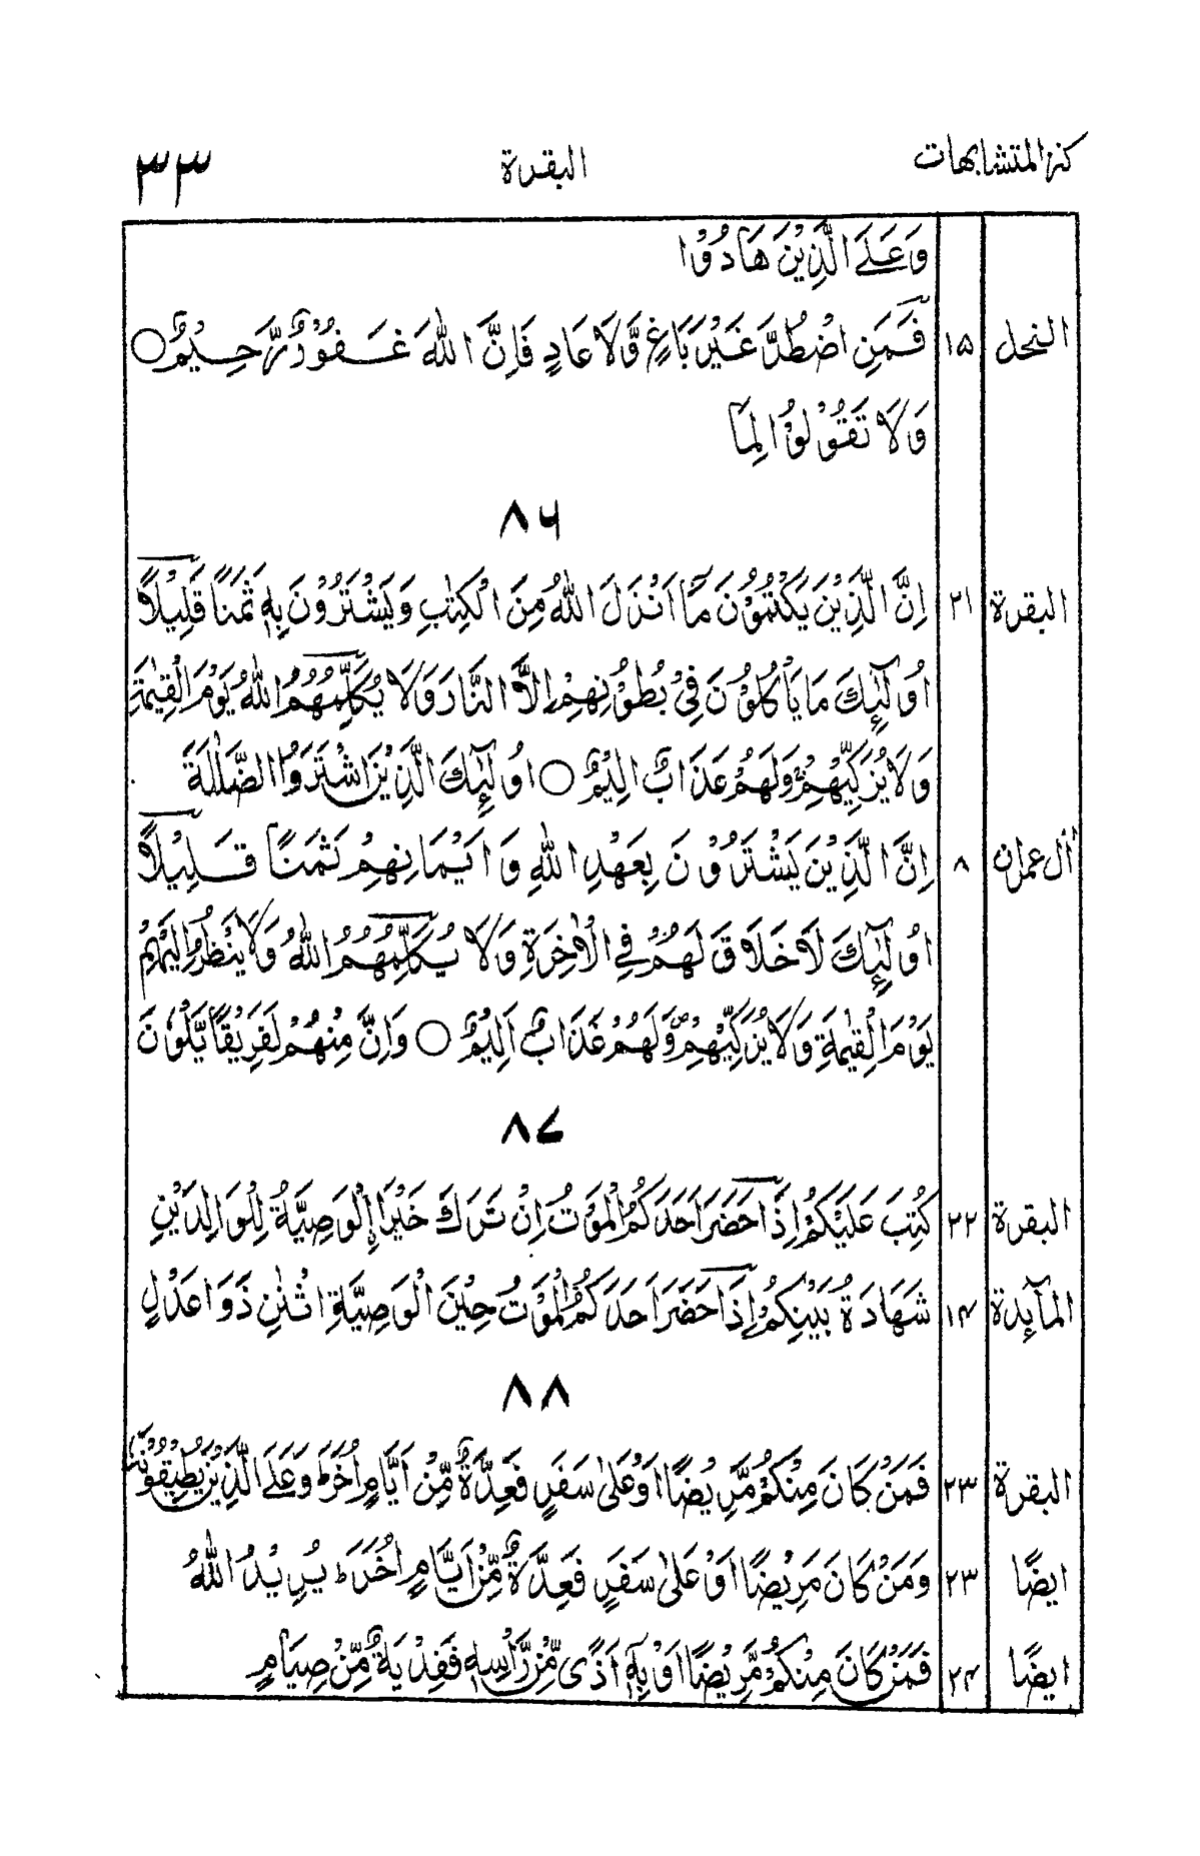 كنز المتشابهات البقرة ٣٣
وَعَلَى الَّذِيْنَ هَادُوْا
النحل ١٥ فَمَنِ اضْطُرَّ غَيْرَ بَاغٍ وَّلَا عَادٍ فَاِنَّ اللّٰهَ غَفُوْرٌ رَّحِيْمٌ ○
وَلَا تَقُوْلُوْا لِمَا
٨٦
البقرة ٢١ اِنَّ الَّذِيْنَ يَكْتُمُوْنَ مَآ اَنْزَلَ اللّٰهُ مِنَ الْكِتٰبِ وَيَشْتَرُوْنَ بِهٖ ثَمَنًا قَلِيْلًا
اُولٰٓئِكَ مَا يَاْكُلُوْنَ فِيْ بُطُوْنِهِمْ اِلَّا النَّارَ وَلَا يُكَلِّمُهُمُ اللّٰهُ يَوْمَ الْقِيٰمَةِ
وَلَا يُزَكِّيْهِمْ وَلَهُمْ عَذَابٌ اَلِيْمٌ ○ اُولٰٓئِكَ الَّذِيْنَ اشْتَرَوُا الضَّلٰلَةَ
اٰل عمران ٨ اِنَّ الَّذِيْنَ يَشْتَرُوْنَ بِعَهْدِ اللّٰهِ وَاَيْمَانِهِمْ ثَمَنًا قَلِيْلًا
اُولٰٓئِكَ لَا خَلَاقَ لَهُمْ فِي الْاٰخِرَةِ وَلَا يُكَلِّمُهُمُ اللّٰهُ وَلَا يَنْظُرُ اِلَيْهِمْ
يَوْمَ الْقِيٰمَةِ وَلَا يُزَكِّيْهِمْ وَلَهُمْ عَذَابٌ اَلِيْمٌ ○ وَاِنَّ مِنْهُمْ لَفَرِيْقًا يَّلْوٗنَ
٨٧
البقرة ٢٢ كُتِبَ عَلَيْكُمْ اِذَا حَضَرَ اَحَدَكُمُ الْمَوْتُ اِنْ تَرَكَ خَيْرَا اِلْوَصِيَّةُ لِلْوَالِدَيْنِ
المآئدة ١٤ شَهَادَةُ بَيْنِكُمْ اِذَا حَضَرَ اَحَدَكُمُ الْمَوْتُ حِيْنَ الْوَصِيَّةِ اثْنٰنِ ذَوَا عَدْلٍ
٨٨
البقرة ٢٣ فَمَنْ كَانَ مِنْكُمْ مَّرِيْضًا اَوْ عَلٰى سَفَرٍ فَعِدَّةٌ مِّنْ اَيَّامٍ اُخَرَ ط وَعَلَى الَّذِيْنَ يُطِيْقُوْنَهٗ
ايضًا ٢٣ وَمَنْ كَانَ مَرِيْضًا اَوْ عَلٰى سَفَرٍ فَعِدَّةٌ مِّنْ اَيَّامٍ اُخَرَ ط يُرِيْدُ اللّٰهُ
ايضًا ٢٤ فَمَنْ كَانَ مِنْكُمْ مَّرِيْضًا اَوْ بِهٖٓ اَذًى مِّنْ رَّاْسِهٖ فَفِدْيَةٌ مِّنْ صِيَامٍ